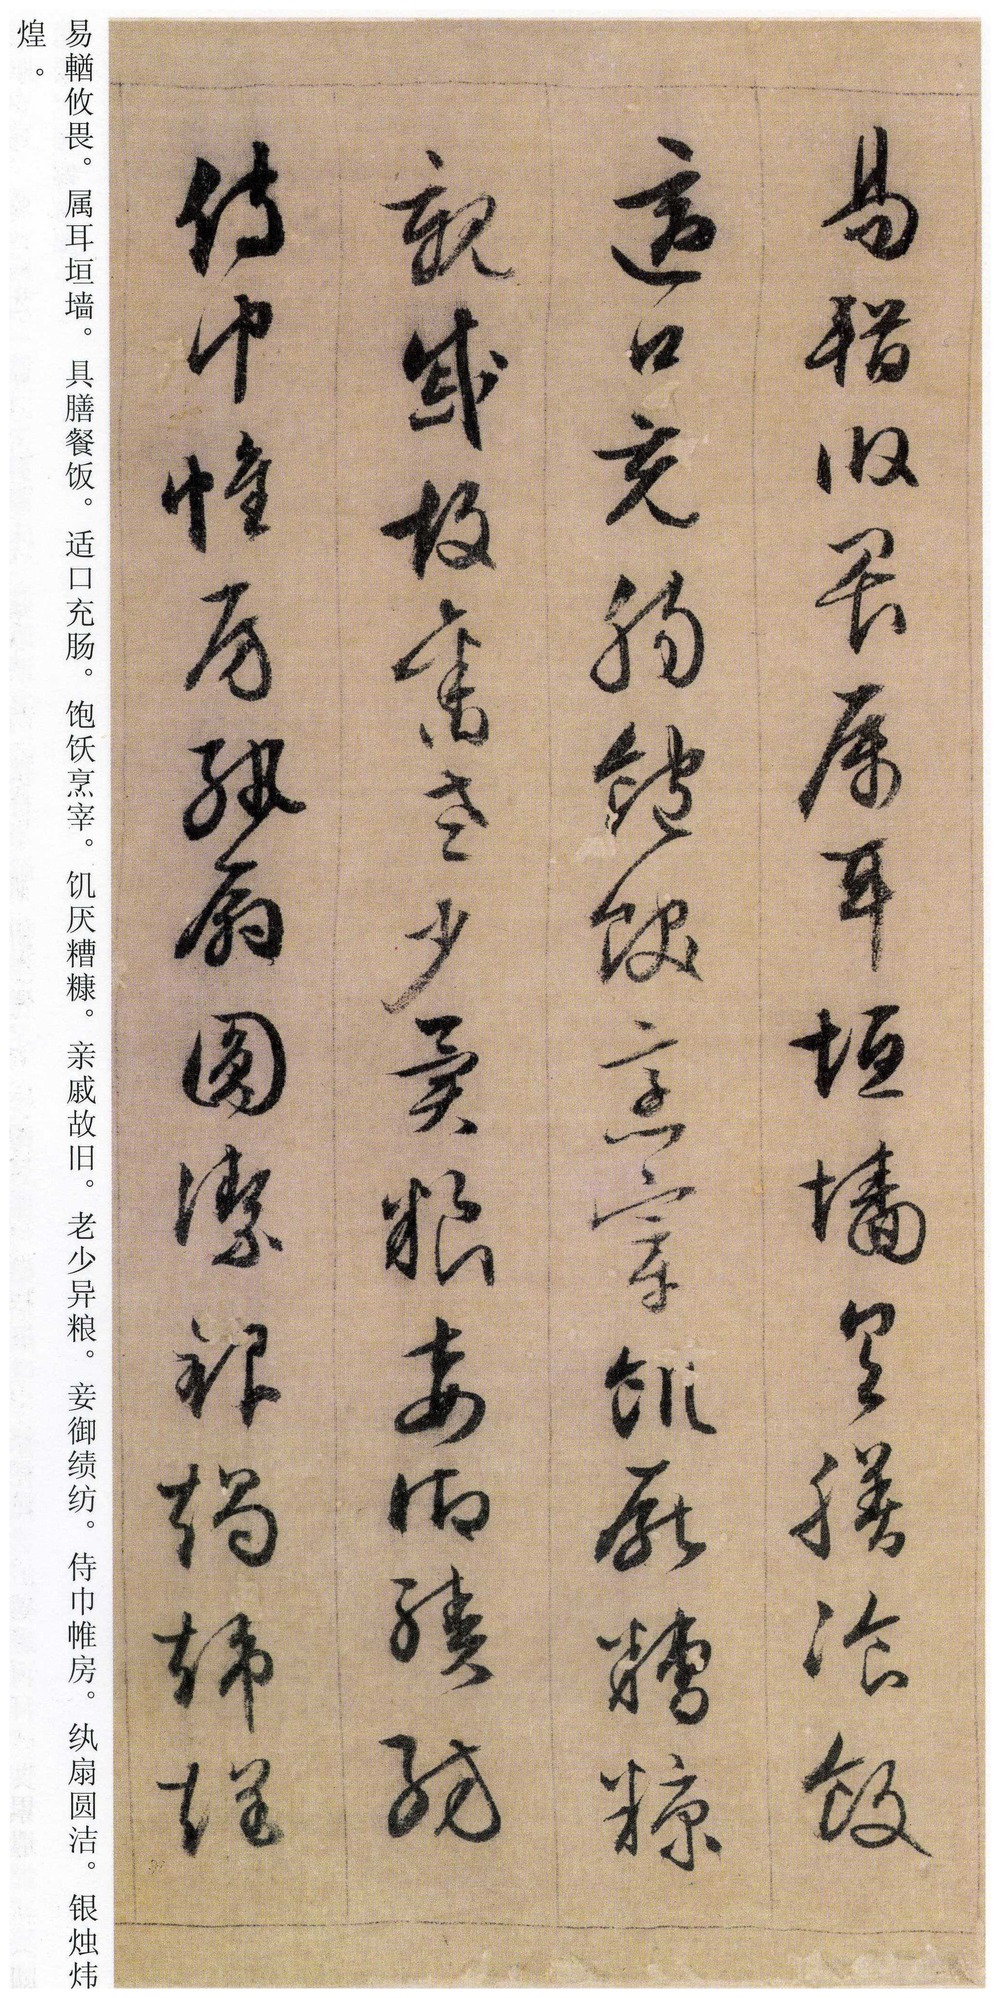 易輶攸畏属耳垣墙具膳飡饭
適口充肠饱饫烹宰饥厌糟糠
親戚故旧老少異粮妾御績纺
侍巾帷房纨扇圆潔银烛炜煌
易輶攸畏。属耳垣墙。具膳餐饭。适口充肠。饱饫烹宰。饥厌糟糠。亲戚故旧。老少异粮。妾御绩纺。侍巾帷房。纨扇圆洁。银烛炜
煌。